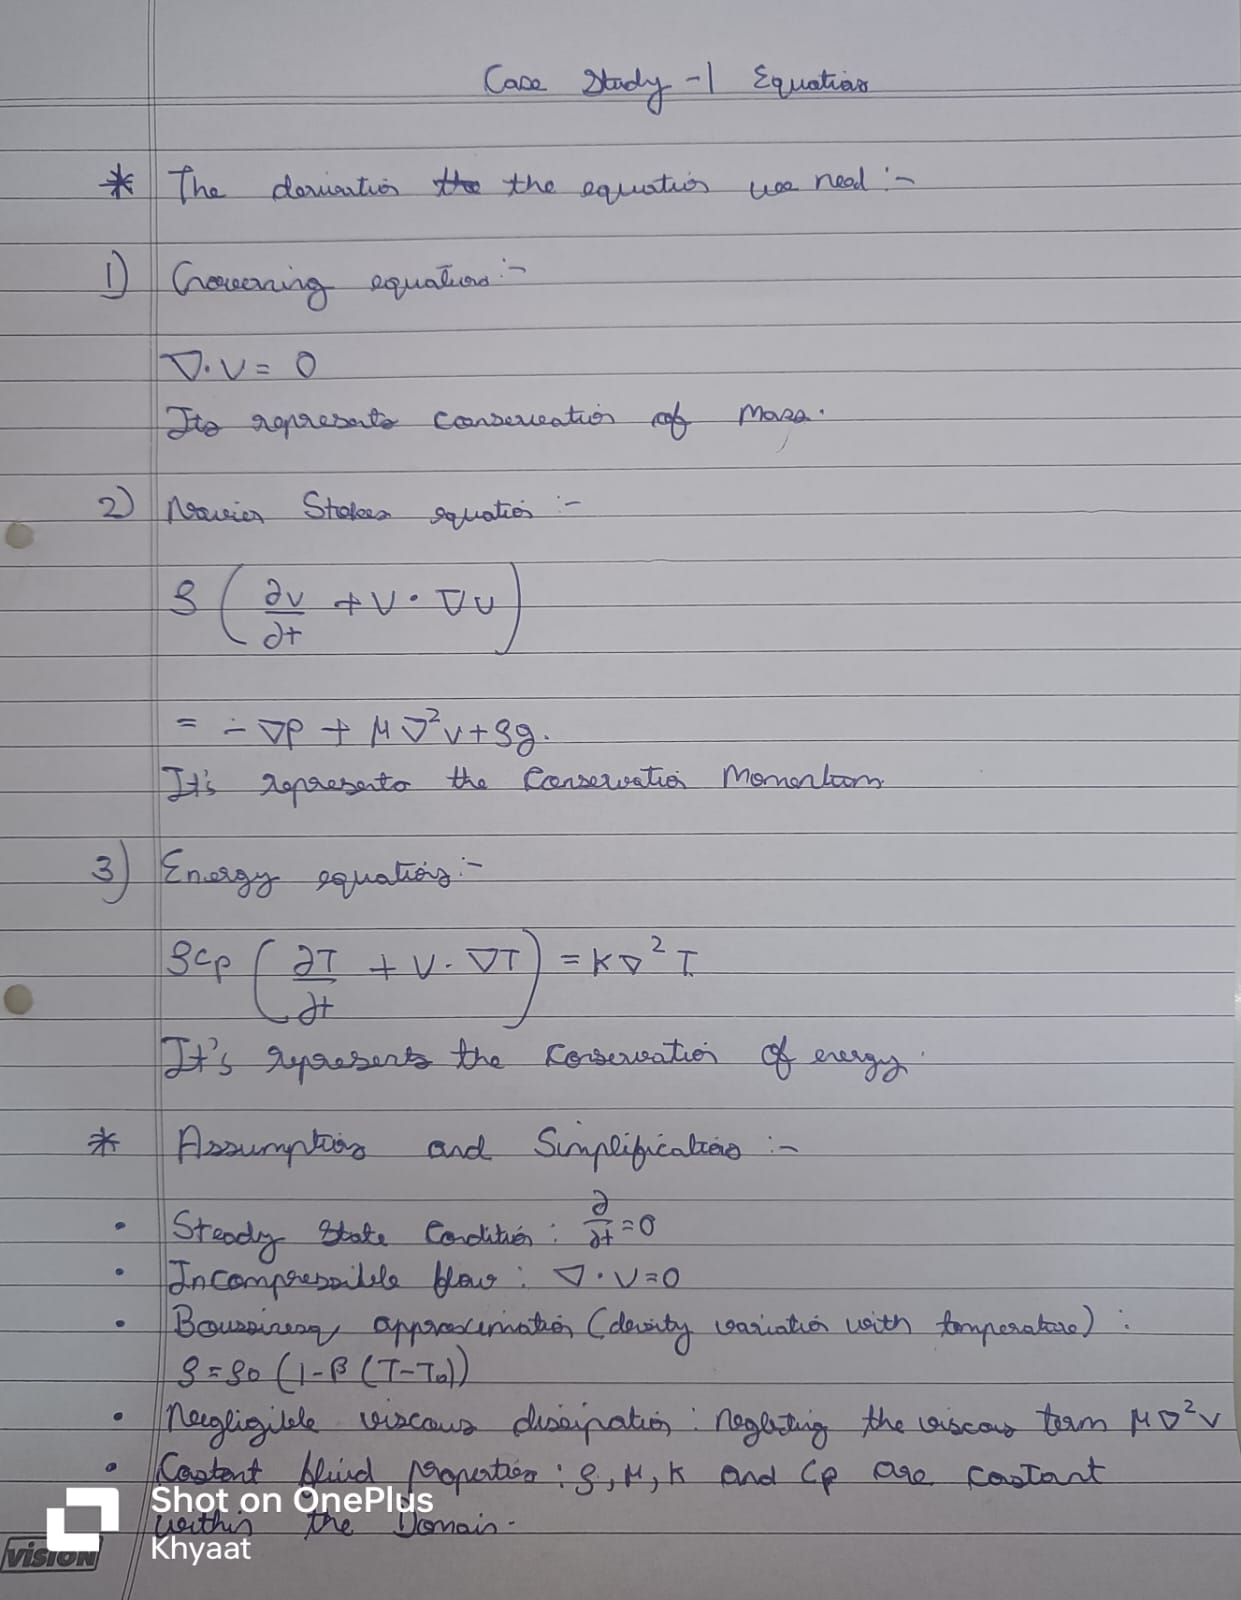 Case Study -1 Equations
* The derivation the the equation we need :-
1) Governing equations :-
∇·V = 0
Its represents conservation of Mass.
2) Navier Stokes equation :-
ρ ( ∂v/∂t + V · ∇v )
= - ∇P + μ∇²v + ρg.
It's represents the Conservation Momentum
3) Energy equations :-
ρCp ( ∂T/∂t + V · ∇T ) = K∇²T.
It's represents the conservation of energy.
* Assumptions and Simplifications :-
• Steady State Condition : ∂/∂t = 0
• Incompressible flow : ∇·V=0
• Boussinesq approximation (density variation with temperature) :
ρ = ρ0 (1-β (T-T0))
• Neegligible viscous dissipation : neglecting the viscous term μ∇²v
• Costent fluid properties : ρ, μ, K and Cp are costant
within the Domain.
Shot on OnePlus
Khyaat
VISION